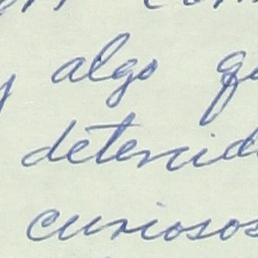 y algo
detenid
curiosos